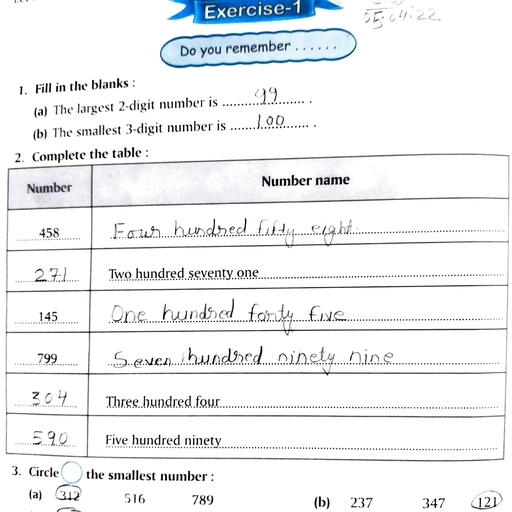 Exercise-1
05.04.22
Do you remember ......
1. Fill in the blanks :
(a) The largest 2-digit number is ....99.... .
(b) The smallest 3-digit number is ....100.... .
2. Complete the table :
Number Number name
458 Four hundred fifty eight.
271 Two hundred seventy one
145 One hundred forty five
799 Seven hundred ninety nine
304 Three hundred four
590 Five hundred ninety
3. Circle the smallest number :
(a) 312 516 789 (b) 237 347 121